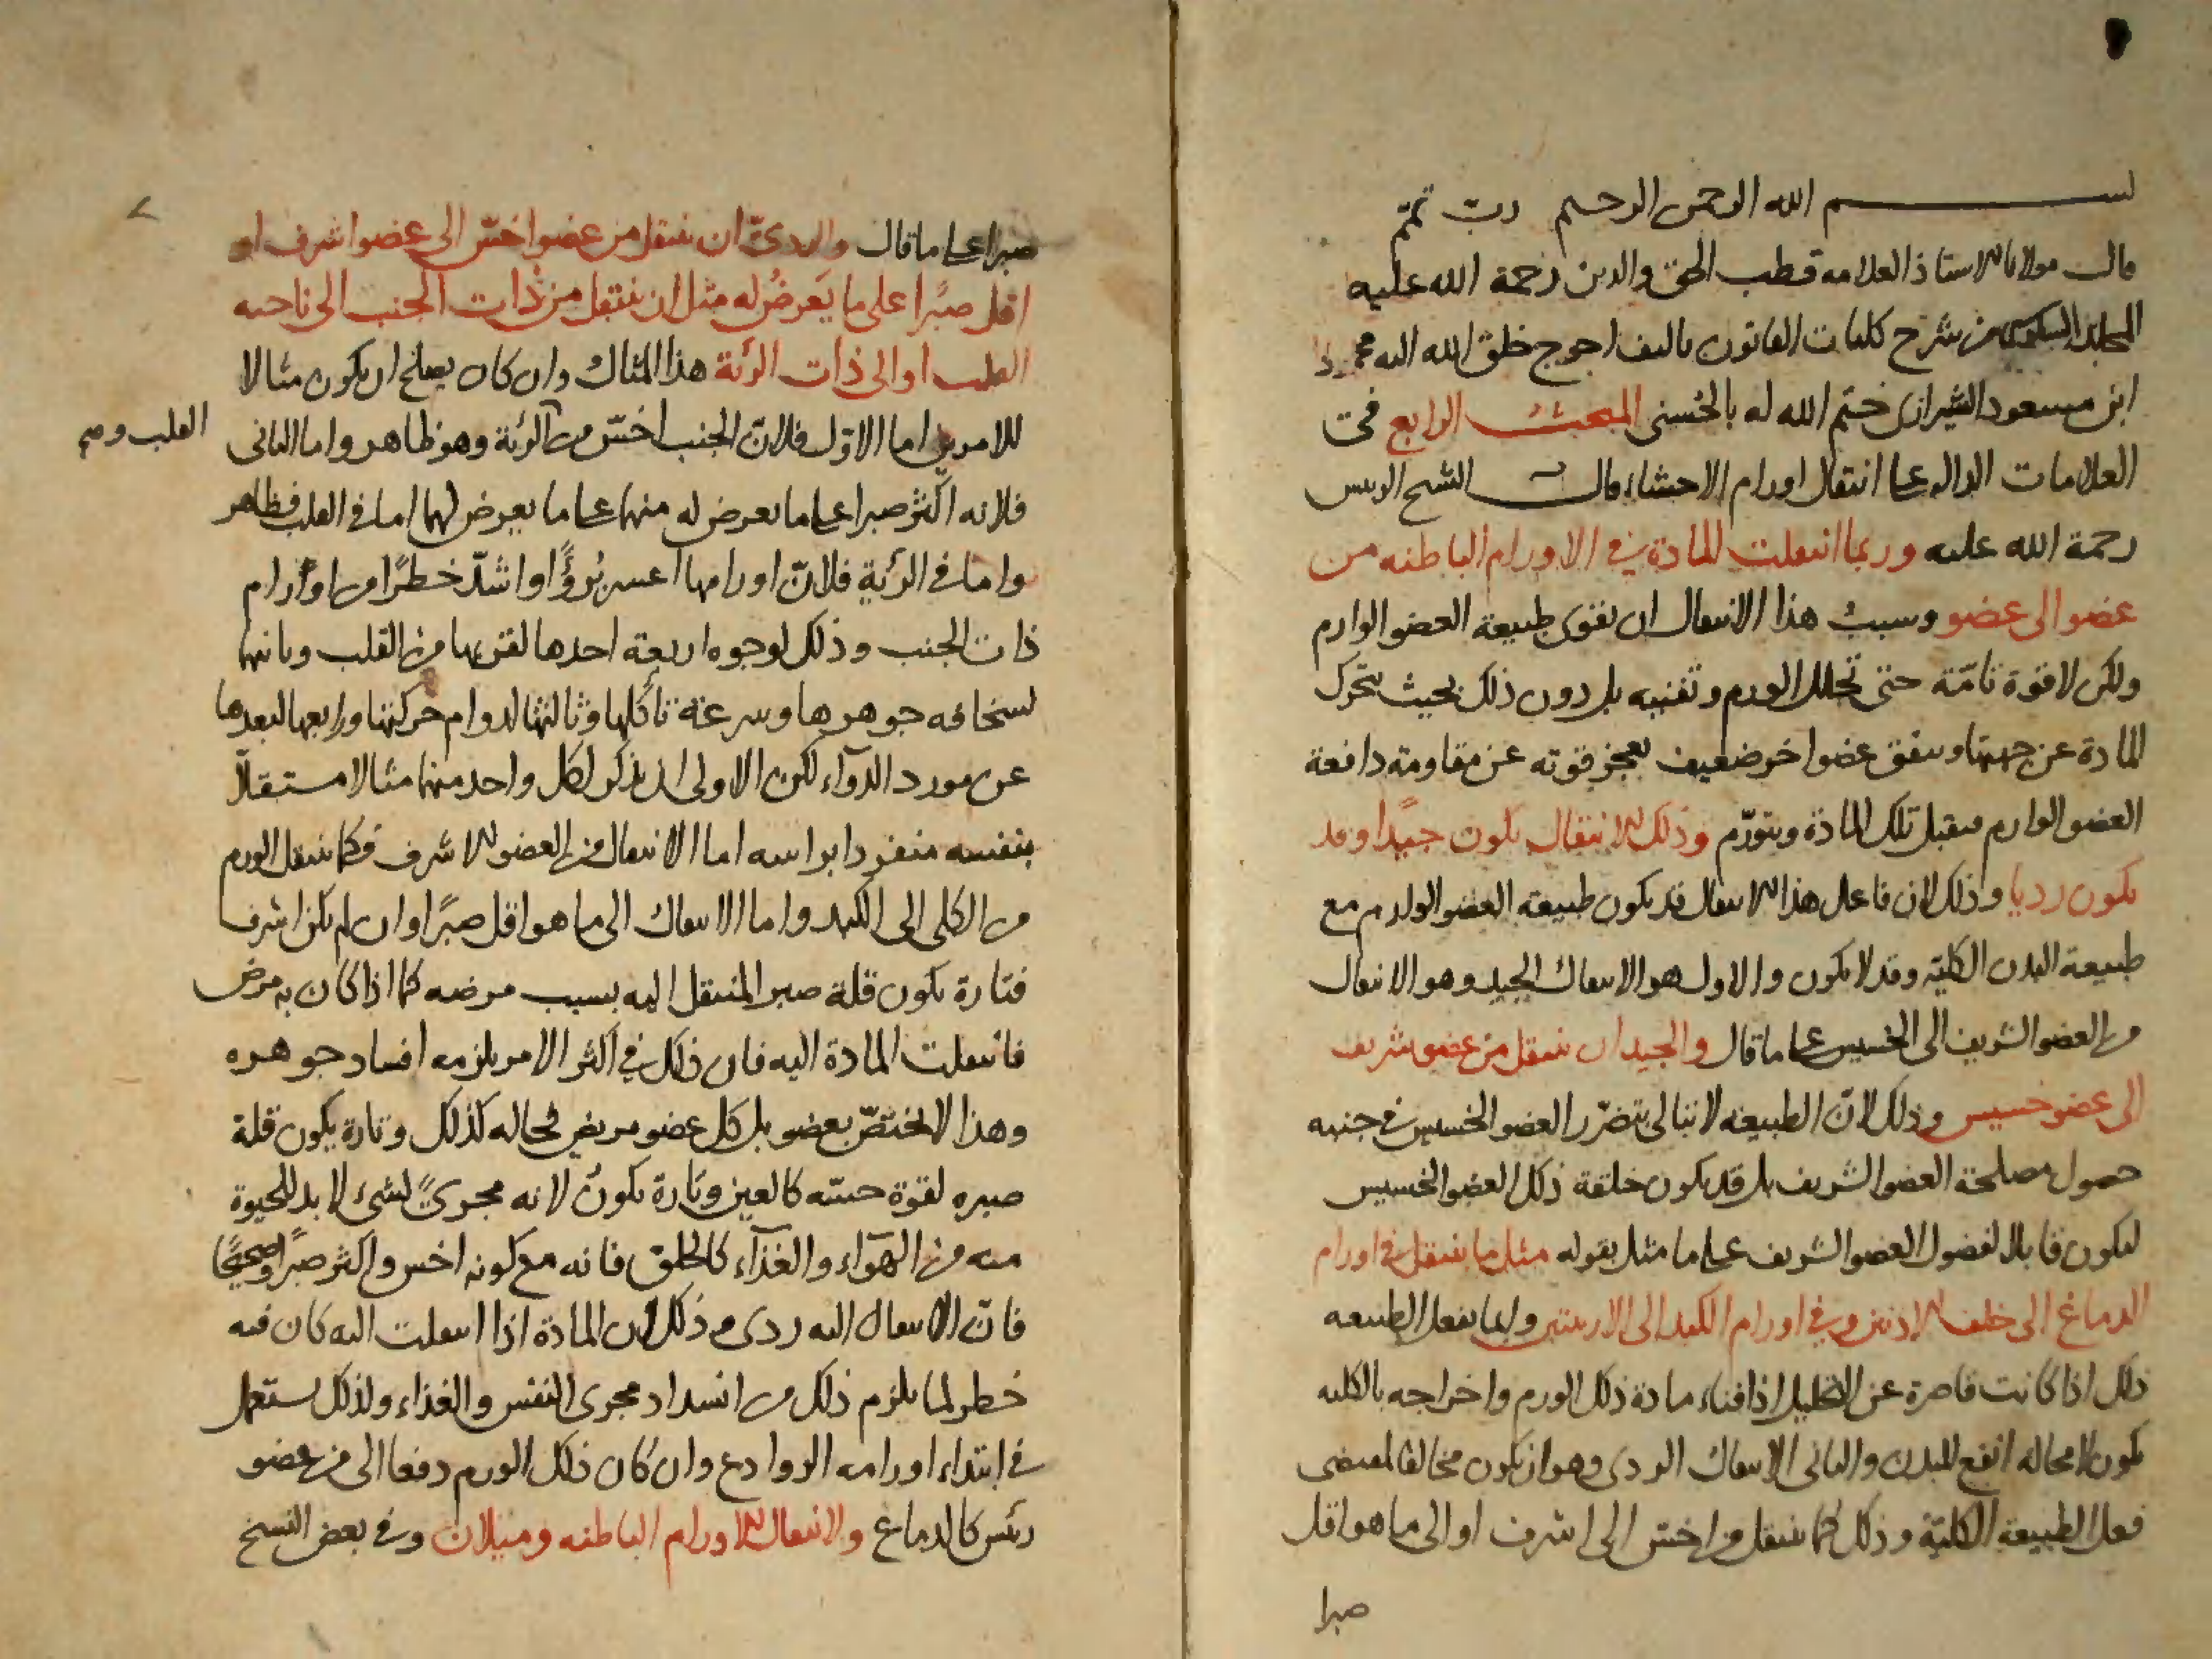 بسم الله الرحمن الرحيم رب تمم
قال مولانا الاستاذ العلامه قطب الحق والدين رحمة الله عليه
المجلد من شرح كليات القانون تاليف احوج خلق الله اليه محمود
ابن مسعود الشيرازى ختم الله له بالحسنى المبحث الرابع فى
العلامات الداله على انتقال اورام الاحشاء قال الشيخ الرييس
رحمة الله عليه وربما انتقلت المادة في الاورام الباطنه من
عضو الى عضو وسبب هذا الانتقال ان تقوى طبيعة العضو الوارم
ولكن لا قوة تامّة حتى تحلل الورم وتفنيه بل دون ذلك بحيث تحرك
المادة عن جهتها وسفق عضوا اخر ضعيف تعجز قوته عن مقاومة دافعة
العضو الوارم فيقبل تلك المادة ويتورّم وذلك الانتقال يكون جيدا وقد
يكون رديا وذلك لان فاعل هذا الانتقال قد يكون طبيعة العضو الوارم مع
طبيعة البدن الكليّة وقد لا يكون والاول هو الانتقال الجيد وهو الانتقال
من العضو الشريف الى الخسيس على ما قال والجيد ان ينتقل من عضو شريف
الى عضو خسيس وذلك لانّ الطبيعة لا تبالى بتضرّر العضو الخسيس في جنبه
حصول مصلحة العضو الشريف بل قد يكون خلقة ذلك العضو الخسيس
ليكون قابلا لفضول العضو الشريف على ما مثل بقوله مثل ما ينتقل في اورام
الدماغ الى خلف الاذنين وفي اورام الكبد الى الاربيتين وانما تفعل الطبيعه
ذلك اذا كانت قاصرة عن التحليل اذ افناء مادة ذلك الورم واخراجه بالكليه
يكون لا محاله انفع للبدن والثانى الانتقال الردى وهو ان يكون مخالفا لمقتضى
فعل الطبيعة الكليّة وذلك كما ينتقل من اخسّ الى اشرف او الى ما هو اقل
صبرا
صبرا على ما قال والردىّ ان ينتقل من عضو اخسّ الى عضو اشرف او
اقل صبرًا على ما يَعرضُ له مثل ان ينتقل من ذات الجنب الى ناحيه
القلب او الى ذات الرئة هذا المثال وان كان يصلح ان يكون مثالا
للامرين اما الاوّل فلانّ الجنب اخسّ من الرئة وهو ظاهر واما الثانى
القلب ومن
فلانه اكثر صبرا على ما يعرض له منهما على ما يعرض لهما اما في القلب فظاهر
واما في الرئة فلانّ اورامها اعسر بُرؤًا واشدّ خطرًا من اورام
ذات الجنب وذلك لوجوه اربعة احدها لقربها من القلب وثانيها
لسخافه جوهرها وسرعة تأكلها وثالثها لدوام حركتها ورابعها لبعدها
عن مورد الدوآء لكن الاولى ان يذكر لكل واحد منهما مثالا مستقلاّ
بنفسه منفردا براسه اما الانتقال من العضو الاشرف فكما ينتقل الورم
من الكلى الى الكبد واما الانتقال الى ما هو اقل صبرًا وان لم يكن اشرف
فتارة يكون قلة صبر المنتقل اليه بسبب مرضه كما اذا كان به مرض
فانتقلت المادة اليه فان ذلك في اكثر الامر يلزمه افساد جوهره
وهذا لا يختصّ بعضو بل كل عضو مريض فحاله كذلك وتارة يكون قلة
صبره لقوة حسّه كالعين وتارة يكون لانه مجرىً لشئ لا بد للحيوة
منه من الهوآء والغذآء كالحلق فانه مع كونه اخس واكثر صبرًا وصحيحًا
فانّ الانتقال اليه ردى وذلك لان المادة اذا انتقلت اليه كان فيه
خطر لما يلزم ذلك من انسداد مجرى النفس والغذاء ولذلك ستعمل
في ابتداء اورامه الروادع وان كان ذلك الورم دفعا الى من عضو
رئيس كالدماغ والانتقال الاورام الباطنه وميلان وفي بعض النسخ